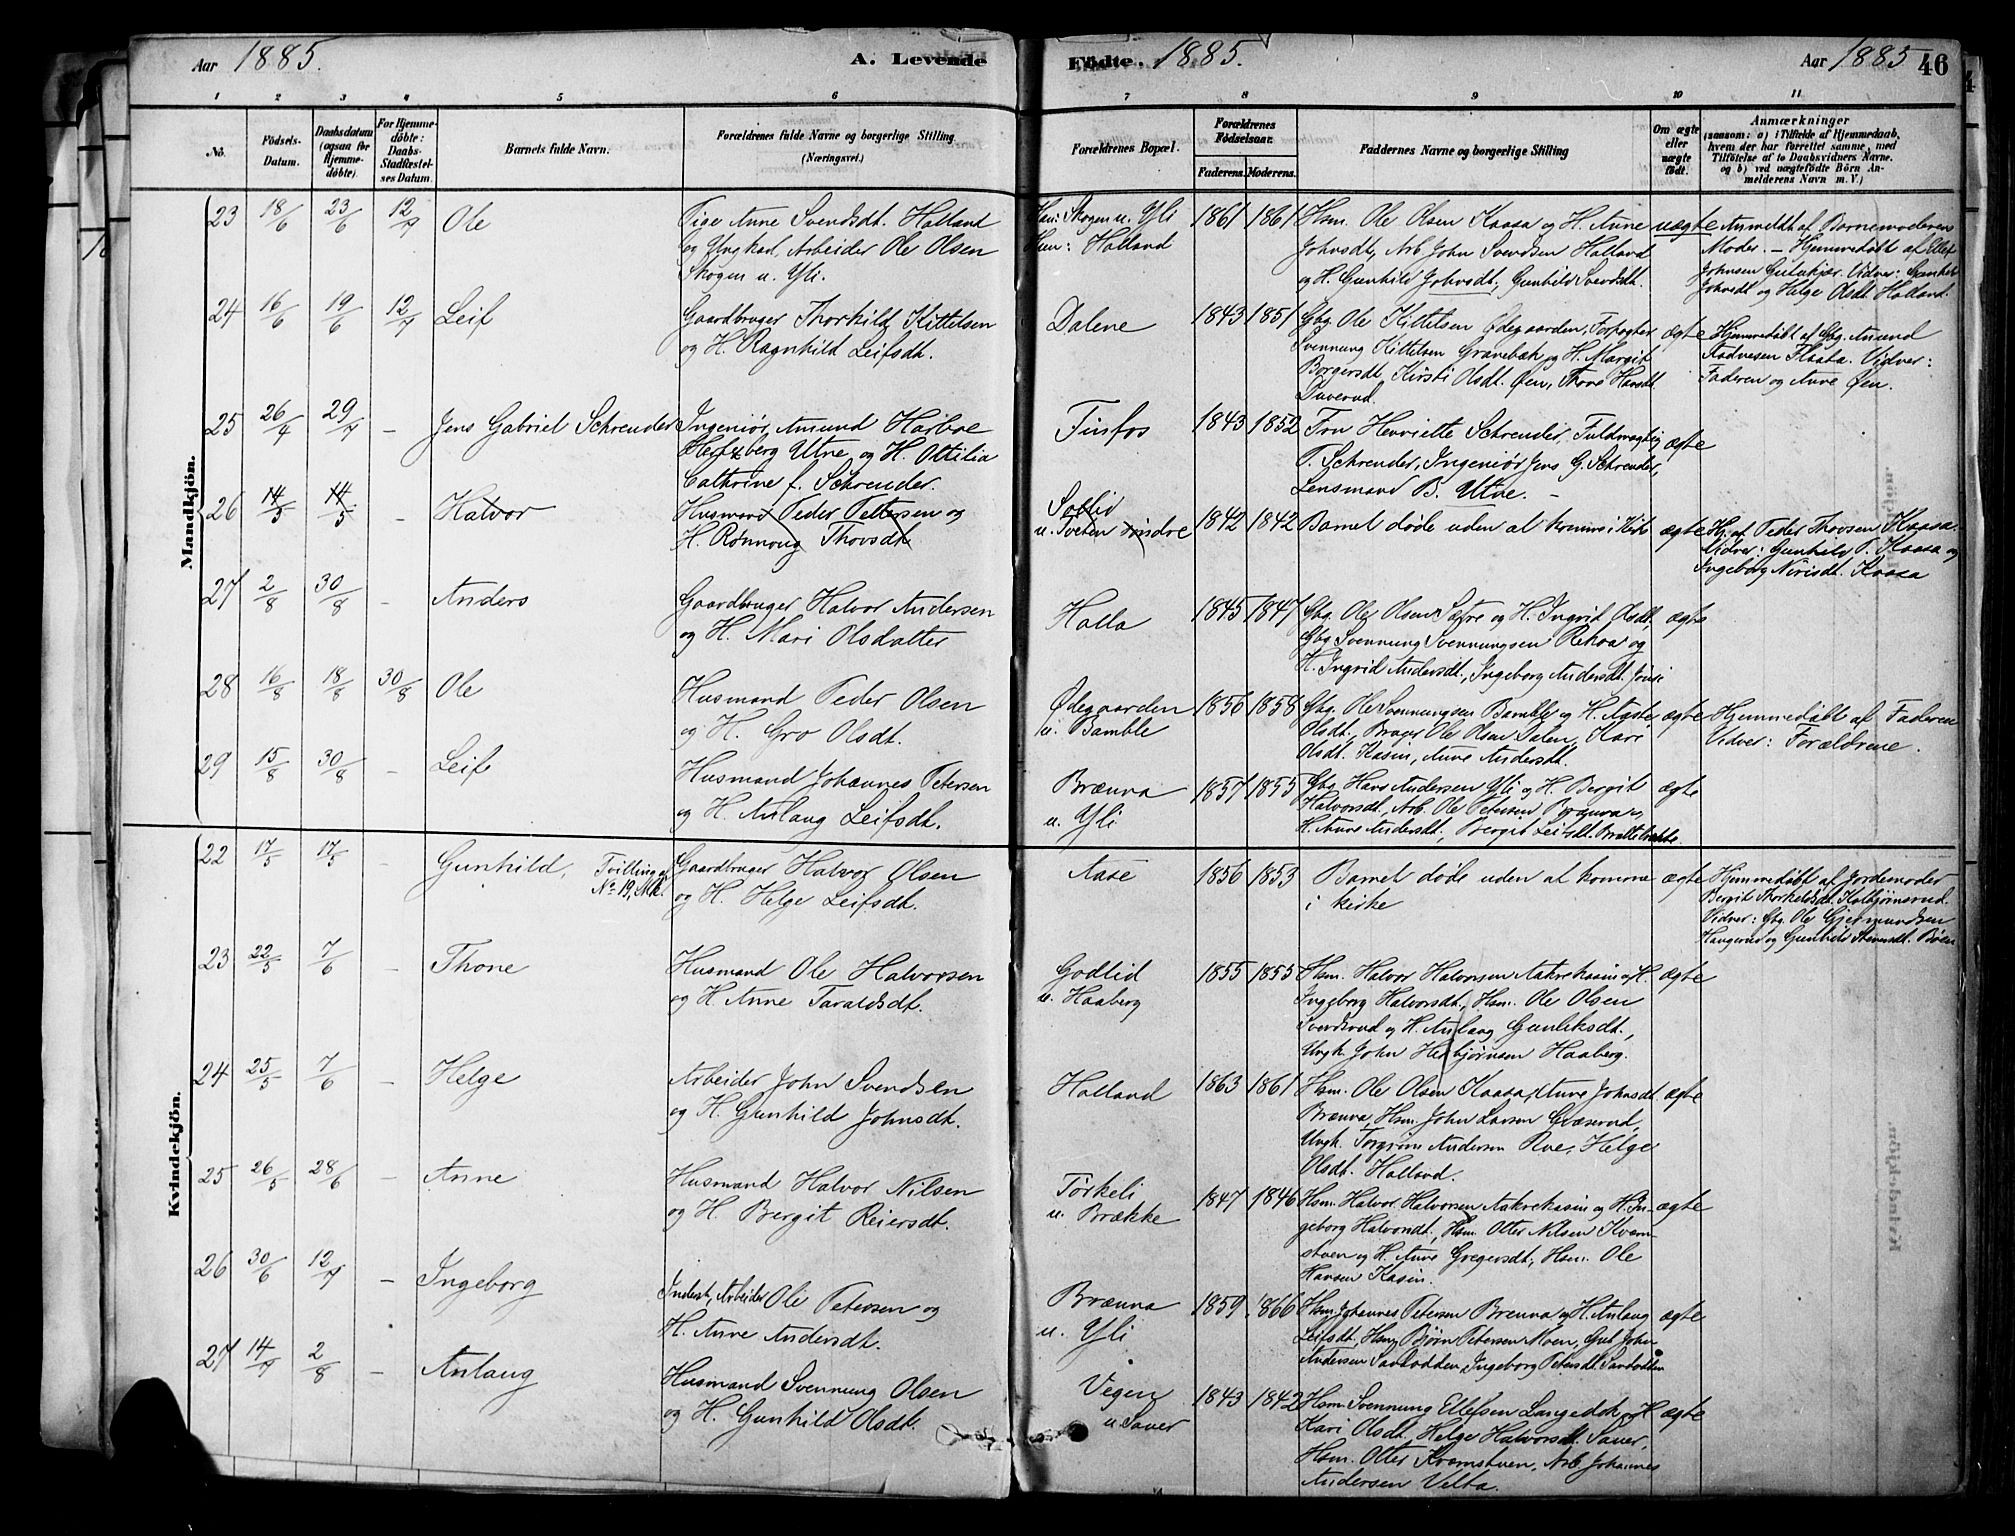 Aar 1885.
A. Levende
Fødte. 1885.
Aar 1885
46
1 2 3 4 5 6 7 8 9 10 11
No.
Födsels-Datum.
Daabsdatum (ogsaa for Hjemmedöbte).
For Hjemmedöbte: Daabs-Stadfæstelses Datum.
Barnets fulde Navn.
Forældrenes fulde Navne og borgerlige Stilling.
(Næringsvei.)
Forældrenes Bopæl.
Forældrenes Födselsaar.
Faderens. Moderens.
Faddernes Navne og borgerlige Stilling
Om ægte eller uægte födt.
Anmærkninger
(saasom: a) i Tilfælde af Hjemmedaab, hvem der har forrettet samme, med Tilföielse af to Daabsvidners Navne, og b) ved uægtefödte Börn Anmelderens Navn m. V.)
Mandkjön.
23 18/6 23/6 12/7 Ole
Pige Anne Svendsdt. Holland
og Ungkarl, Arbeider Ole Olsen
Skogen u. Yli.
Hsm: Skogen u. Yli
Hsm: Holland
1861 1861
Hsm. Ole Olsen Kaasa og H. Anne
Johnsdt, Arb. John Svendsen Holland
og H. Gunhild Johnsdt, Gunhild Svendsdt.
uægte
Anmeldt af Barnemoderens
Moder. – Hjemmedøbt af Ellef
Johnsen
Vidver: Gunhild
Johnsdt og Helge Olsdt. Holland.
24 16/6 19/6 12/7 Leif
Gaardbruger Thorkild Kittelsen
og H. Ragnhild Leifsdt.
Dalene
1843 1851
Gbg. Ole Kittelsen Ødegaarden, Forpagter
Svennung Kittelsen Gravebæk og H. Margit
Borgersdt, Kirsti Olsdt. Øen, Thone Hansdt.
ægte
Hjemmedøbt af Gbg. Amund
Flaata. Vidver:
Faderen og Anne Øen.
25 26/4 29/7 – Jens Gabriel Schreuder
Ingeniør Amund Harboe
Hertzberg Utne og H. Ottilia
Cathrine f. Schreuder.
Tinfos
1843 1852
Fru Henriette Schreuder, Fuldmægtig
T. Schreuder, Ingeniør Jens G. Schreuder,
Lensmand B. Utne. –
ægte
26 14/5 14/5 – Halvor
Husmand Peder Pettersen og
H. Rønnoug Thovsdt.
u. Tveten søndre
1842 1842
Barnet døde uden at komme i Kirke
ægte
Hj. af Peder Thovsen Kaasa.
Vidver: Gunhild P. Kaasa og
Ingeborg Nirisdt. Kaasa
27 2/8 30/8 – Anders
Gaardbruger Halvor Andersen
og H. Mari Olsdatter
Holla
1845 1847
Gbg. Ole Olsen Sætre og H. Ingrid Olsdt,
Gbg Svennung Svennungsen Rehaa og
H. Ingrid Andersdt., Ingeborg Andersdt.
ægte
28 16/8 18/8 30/8 Ole
Husmand Peder Olsen
og H. Gro Olsdt.
Ødegaarden
u. Bamble
1856 1858
Gbg. Ole Svennungsen Bamble og H. Aaste
Olsdt., Bruger Ole Olsen Dalen, Kari
Olsdt. Kasin, Anne Andersdt.
ægte
Hjemmedøbt af Faderen
Vidver: Forældrene.
29 15/8 30/8 – Leif
Husmand Johannes Petersen
og H. Anlaug Leifsdt.
Brænna
u. Yli
1857 1855
Gbg Hans Andersen Yli og H. Bergit
Halvorsdt, Arb. Ole Petersen Brænna,
H. Anne Andersdt., Bergit Leifsdt. Brattebrække
ægte
Kvindekjön.
22 17/5 17/5 – Gunhild, Tvilling af No. 19, Mk.
Gaardbruger Halvor Olsen
og H. Helge Leifsdt.
Aase
1856 1853
Barnet døde uden at komme
i kirke
ægte
Hjemmedøbt af Jordemoder
Bergit Thorkildsdt. Kolbjørnsrud.
Vidver: Gbg. Ole Gjermundsen
Haugerud og Gunhild Stensdt. Bøen
23 22/5 7/6 – Thone
Husmand Ole Halvorsen
og H. Anne Taraldsdt.
Godlid
u. Haaberg
1855 1855
Hsm. Halvor Halvorsen Aakrekasin og H.
Ingeborg Halvorsdt., Hsm. Ole Olsen
Svendsrud og H. Anlaug Gunleksdt,
Ungk. John Herbjørnsen Haaberg.
ægte
24 25/5 7/6 – Helge
Arbeider John Svendsen
og H. Gunhild Johnsdt.
Holland
1863 1861
Hsm. Ole Olsen Kaasa, Anne Johnsdt
Brænna, Hsm. John Larsen Gvæserud,
Ungk. Torgrim Andersen Rue, Helge
Olsdt. Holland.
ægte
25 26/5 28/6 – Anne
Husmand Halvor Nilsen
og H. Bergit Reiersdt.
Tørkeli
u. Brække
1847 1846
Hsm. Halvor Halvorsen Aakrekasin og H. In-
geborg Halvorsdt, Hsm. Otter Nilsen Kvam-
stuen og H. Anne Gregersdt, Hsm. Ole
Hansen Kasin.
ægte
26 30/6 12/7 – Ingeborg
Inderst, Arbeider Ole Petersen og
H. Anne Andersdt.
Brænna
u. Yli
1859 1866
Hsm. Johannes Petersen Brenna og H. Anlaug
Leifsdt. Hsm. Bjørn Petersen Moen, Gut John
Andersen Saobodden, Ingeborg Petersdt. Saobodden
ægte
27 14/7 2/8 – Anlaug
Husmand Svennung Olsen
og H. Gunhild Olsdt.
Vegen
u. Sauer
1843 1842
Hsm. Svennung Ellefsen Langedok og H.
Kari Olsdt, Helge Halvorsdt. Sauer,
Hsm. Otter Kvamstuen, Arb. Johannes
Andersen Velta.
ægte